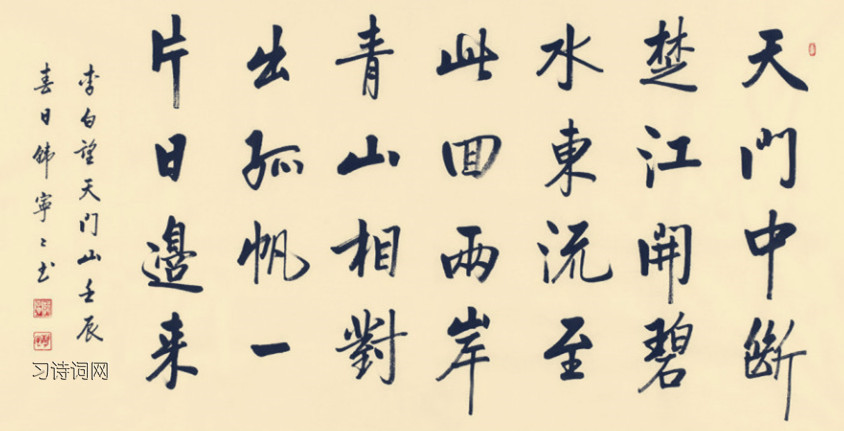 天門中斷
楚江開碧
水東流至
此回兩岸
青山相對
出孤帆一
片日邊来
李白望天門山壬辰
春日韩寧〻书
习诗词网